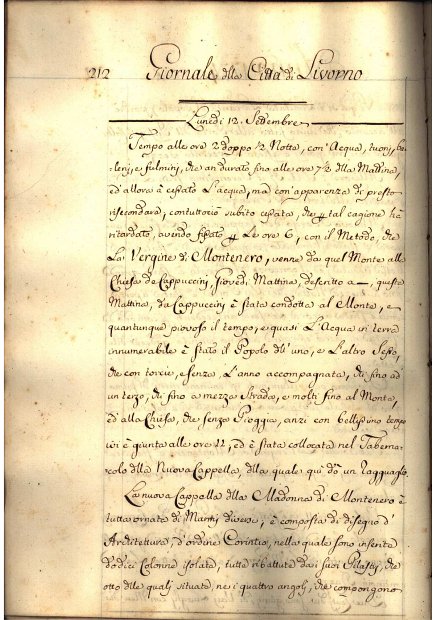 212 Giornale della Città di Livorno
Lunedi 12. Settembre
Tempo alle ore 2 doppo ½ Notte, con' Acqua, tuoni, ba-
leni, e fulmini, che an durato fino alle ore 7½ della Mattina,
ed' allora è cessato L'acqua, ma con' apparenza di presto
risecondara, contuttociò subito cessata, che p tal cagione ha
ritardato, avendo fissato p Le ore 6, con il Metodo, che
La Vergine di Montenero, venne da quel Monte alla
Chiesa de Cappuccini, Giovedi Mattina, descritto a —, questa
Mattina, da Cappuccini è stata condotta al Monte, e
quantunque piovoso il tempo, e quasi L'Acqua in terra
innumerabile è stato il Popolo dell'uno, e L'altro Sesso,
che con torcie, e senza, L'anno accompagnata, chi fino ad
un terzo, chi fino a mezza Strada, e molti fino al Monte,
ed' alla Chiesa, che senza Pioggia, anzi con bellissimo tempo
ivi è giunta alle ore 11, ed è stata collocata nel Taberna-
colo della Nuova Cappella, della quale qui dò un Ragguaglio.
La nuova Cappella della Madonna di Montenero è
tutta ornata di Marmi diversi, è composta di disegno d'
Architettura, d'ordine Corintio, nella quale sono inserite
dodici Colonne isolate, tutte ribattute dai suoi Pilastri, che
otto delle quali situate, nei quattro angoli, che compongono